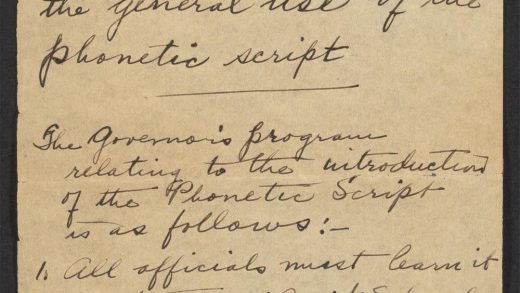 the general use of the
phonetic script
The Governor's program
relating to the introduction
of the Phonetic Script
is as follows:-
1. All officials must learn it